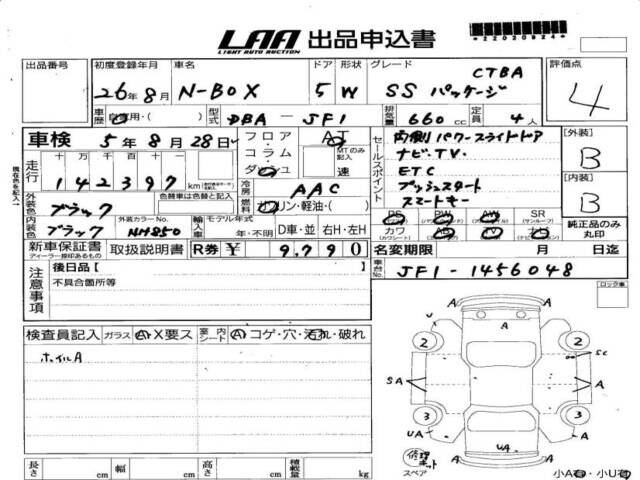 LAA 出品申込書
LIGHT AUTO AUCTION
*22020924*
出品番号 初度登録年月 車名 ドア 形状 グレード 評価点
CTBA
26年8月 N-BOX 5 W SSパッケージ 4
車歴 自家用・( ) 型式 DBA - JF1 排気量 660 cc 定員 4人
車検 5年8月28日 フロア・コラム・ダッシュ AT MTのみ記入 速
セールスポイント 両側パワースライドドア
ナビ・TV.
ETC
プッシュスタート
スマートキー
[外装] B
[内装] B
走行 十万千百十一
142397 km
冷房 AAC
燃料 ガソリン・軽油・( )
外装色 ブラック 色替車は色替と記入
内装色 ブラック 外装カラーNo. NH850 輸入車 モデル年式 年・不明 D車・並 右H・左H
PS PW AW SR
(パワステ) (サンルーフ)
カワ AB TV ナビ
(カワシート)
純正品のみ丸印
新車保証書 取扱説明書 R券 ¥ 9,790 名変期限 月 日迄
ディーラー捺印あるもの
車台No. JF1-1456048
注意事項 後日品[ ]
不具合箇所等
ロック車
検査員記入 ガラス A・X要ス 室内シート A コゲ・穴・汚れ・破れ
ホイルA
A A
2 2
A SC
SA A
3 3
UA A
A UA
修理キット
スペア
小A有・小U有
長さ cm 幅 cm 高さ cm 積載量 kg